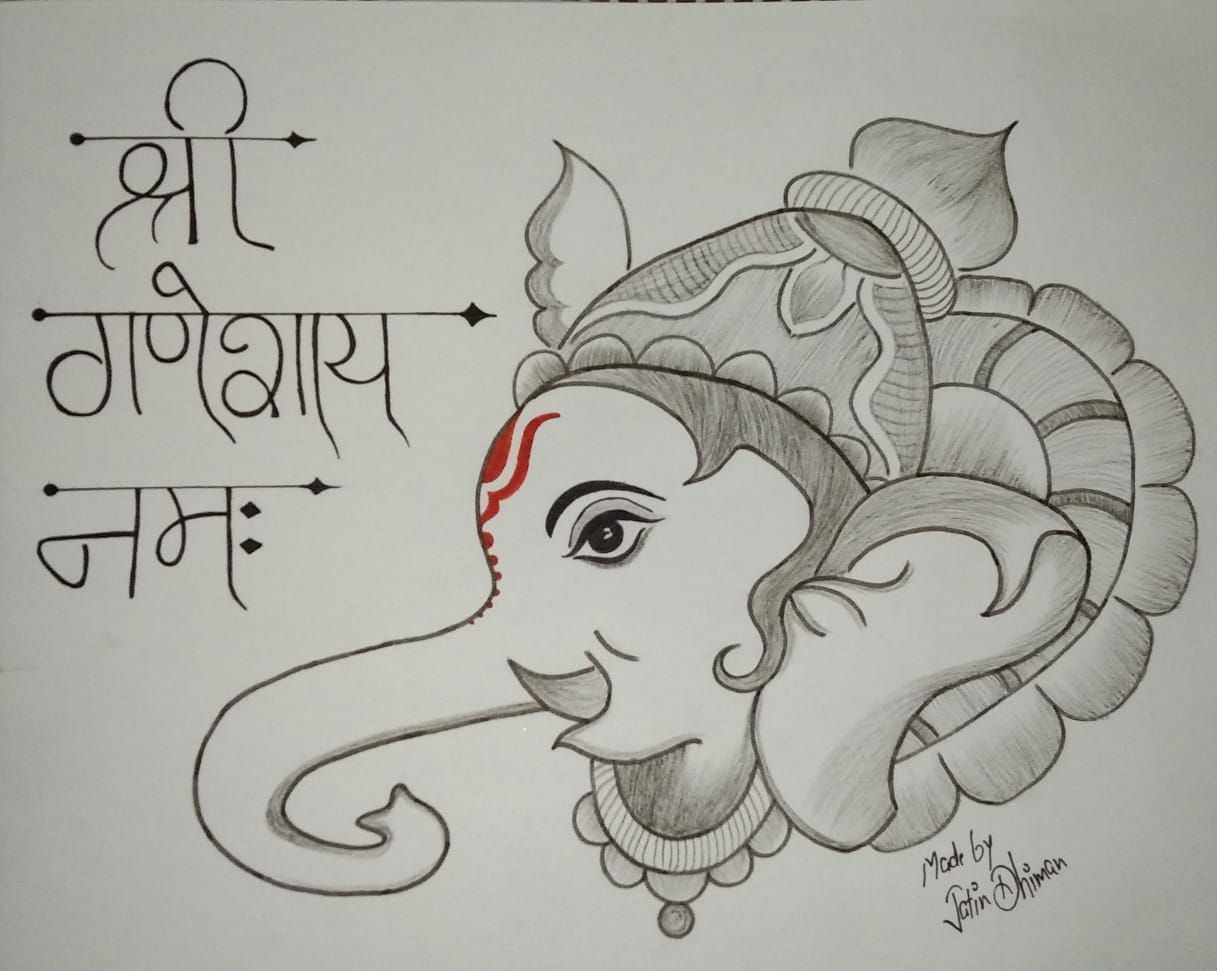 श्री
गणेशाय
नमः
Made by
Jatin Dhiman